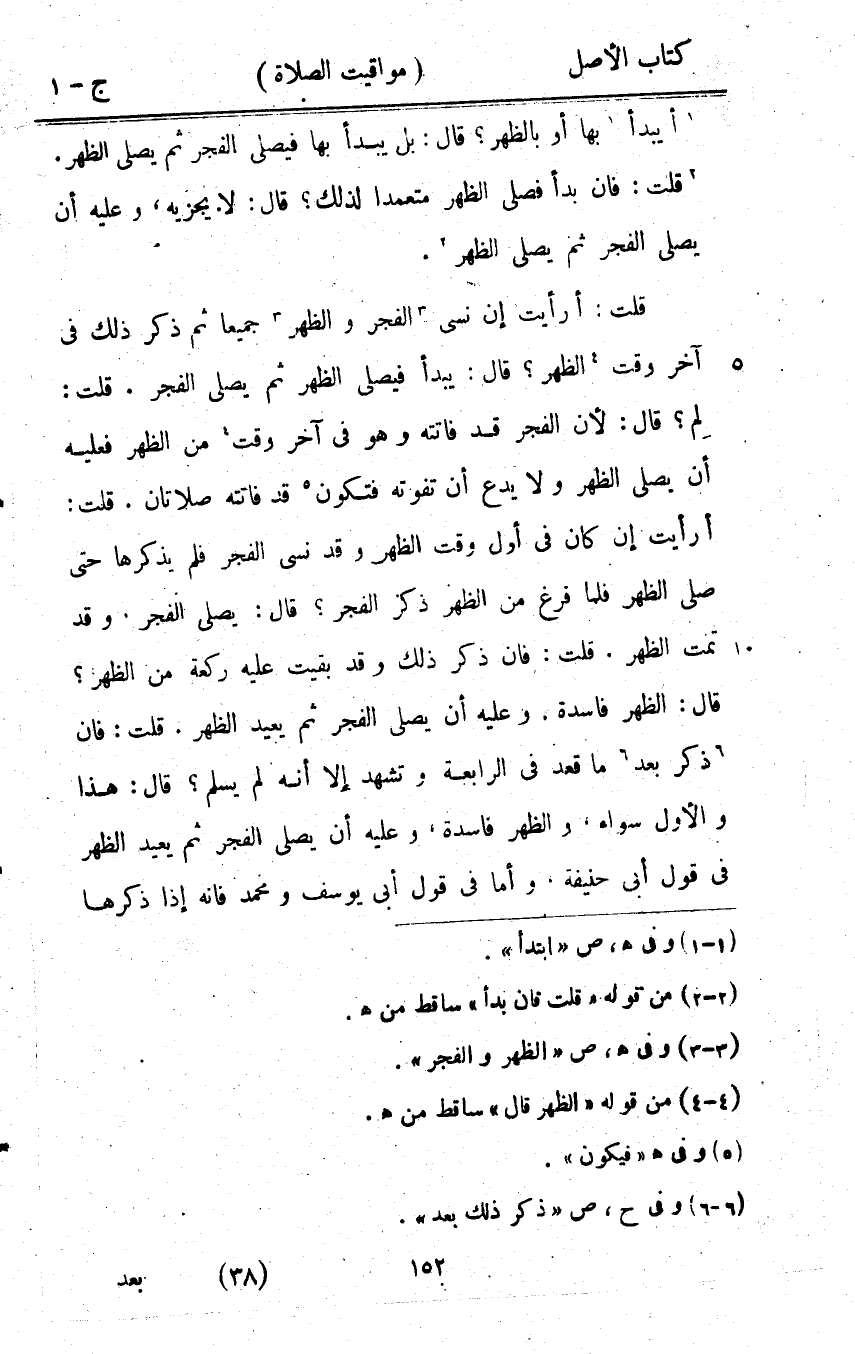 كتاب الأصل ( مواقيت الصلاة ) ج - ١
١ أ يبدأ ١ بها أو بالظهر؟ قال: بل يبدأ بها فيصلى الفجر ثم يصلى الظهر.
٢ قلت: فان بدأ فصلى الظهر متعمدا لذلك؟ قال: لا يجزيه، و عليه أن
يصلى الفجر ثم يصلى الظهر ٢ .
قلت: أ رأيت إن نسى ٣ الفجر و الظهر ٣ جميعا ثم ذكر ذلك فى
٥ آخر وقت ٤ الظهر؟ قال: يبدأ فيصلى الظهر ثم يصلى الفجر . قلت:
لِم؟ قال: لأن الفجر قد فاتته و هو فى آخر وقت ٤ من الظهر فعليه
أن يصلى الظهر و لا يدع أن تفوته فتكون ٥ قد فاتته صلاتان . قلت:
أ رأيت إن كان فى أول وقت الظهر و قد نسى الفجر فلم يذكرها حتى
صلى الظهر فلما فرغ من الظهر ذكر الفجر؟ قال: يصلى الفجر، و قد
١٠ تمت الظهر . قلت: فان ذكر ذلك و قد بقيت عليه ركعة من الظهر؟
قال: الظهر فاسدة، و عليه أن يصلى الفجر ثم يعيد الظهر . قلت: فان
٦ ذكر بعد ٦ ما قعد فى الرابعة و تشهد إلا أنه لم يسلم؟ قال: هذا
و الأول سواء، و الظهر فاسدة، و عليه أن يصلى الفجر ثم يعيد الظهر
فى قول أبى حنيفة، و أما فى قول أبى يوسف و محمد فانه إذا ذكرها
(١-١) و فى ه، ص «ابتدأ» .
(٢-٢) من قوله «قلت فان بدأ» ساقط من ه .
(٣-٣) و فى ه، ص «الظهر و الفجر» .
(٤-٤) من قوله «الظهر قال» ساقط من ه .
(٥) و فى ه «فيكون» .
(٦-٦) و فى ح، ص «ذكر ذلك بعد» .
١٥٢ (٣٨) بعد